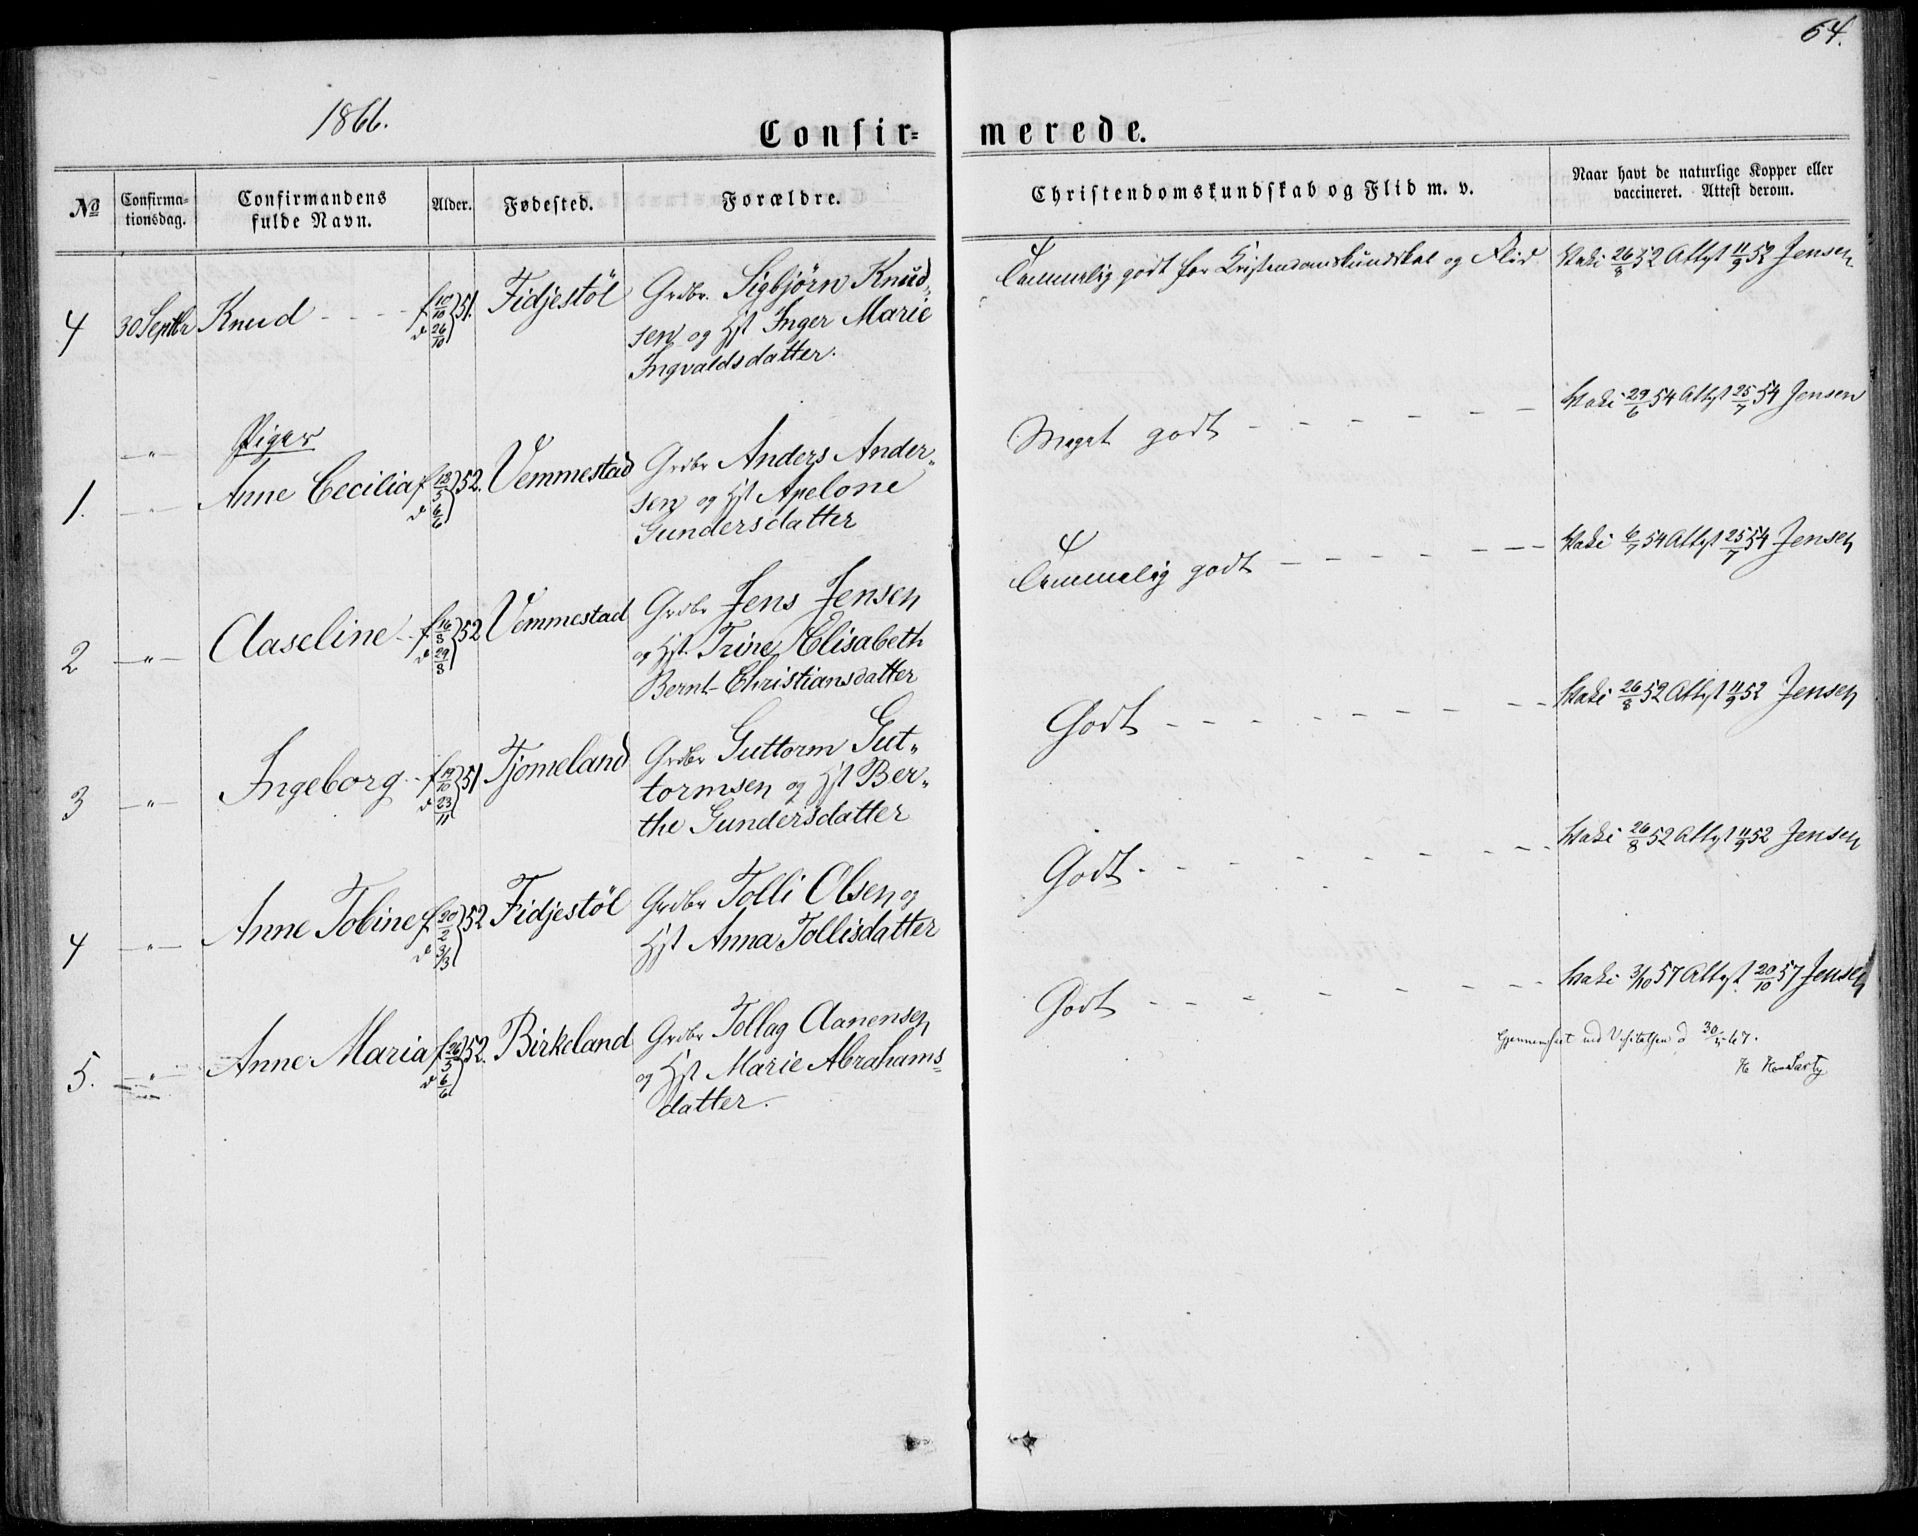 64.
1866.
Confir-merede.
No
Confirma-tionsdag.
Confirmandens fulde Navn.
Alder.
Fødested.
Forældre.
Christendomskundskab og Flid m. v.
Naar havt de naturlige Kopper eller vaccineret. Attest derom.
4 30 Septbr Knud - - - - f 10/10 d 26/10 } 51. Fidjestöl Grdbr. Sigbjörn Knud-
sen og Hst Inger Marie
Ingvaldsdatter.
Temmelig godt for Kristendomskundskab og Flid
Vaki 26/8 52 Attest 11/9 52 Jensen
Piger
1. — " — Anne Cecilia f 13/5 d 6/6 } 52. Vemmestad Grdbr Anders Ander-
sen og Hst Apelone
Gundersdatter
Meget godt - - - - - -
Vaki 29/6 54 Attest 25/7 54 Jensen
2 — " — Aaseline - f. 16/8 d 29/8 } 52 Vemmestad Grdbr Jens Jensen
og Hst. Trine Elisabeth
Bernt-Christiansdatter
Temmelig godt - - - - - -
Vaki 6/7 54 Attest 25/7 54 Jensen
3 — " — Ingeborg - f 19/10 d 23/11 } 51 Tjomeland Grdbr Guttorm Gut-
tormsen og Hst Ber-
the Gundersdatter
Godt - - - - - - -
Vaki 26/8 52 Attest 11/9 52 Jensen
4 — " — Anne Tobine f. 20/2 d 3/3 } 52 Fidjestöl Grdbr Tolli Olsen og
Hst Anna Tollisdatter
Godt - - - - - - -
Vaki 26/8 52 Attest 11/9 52 Jensen
5. — " — Anne Maria f 26/5 d 6/6 } 52. Birkeland Grdbr Tollag Aanensen
og Hst Marie Abrahams-
datter.
Godt - - - - - - -
Vaki 3/10 57 Attest 20/10 57 Jensen
Gjennemseet ved Visitatsen d 30/5 67.